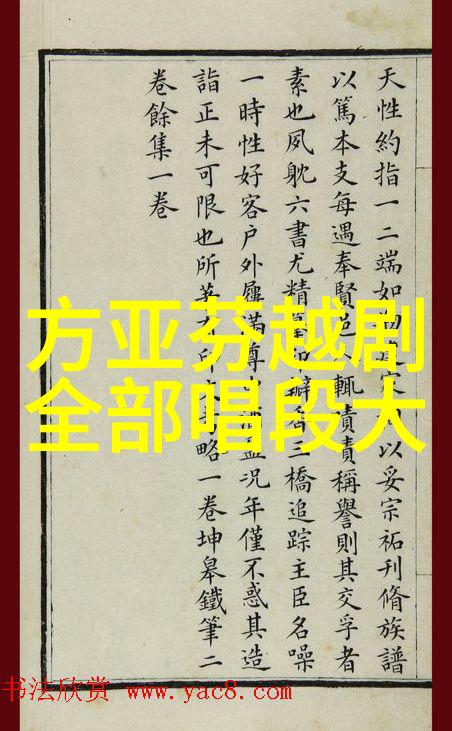 天性約指一二端如以妥宗祏刊脩族譜
以篤本支每遇奉賢邑輒嘖嘖稱譽則其交孚者
素也夙躭六書尤精三橋追踪主臣名噪
一時性好客户外屨滿尊況年僅不惑其造
詣正未可限也所略一卷坤皋鐵筆二
卷餘集一卷
方亚芬越剧
全部唱段大
书法欣赏 www.yac8.com